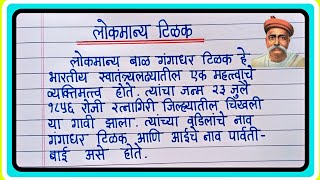 लोकमान्य टिळक
लोकमान्य बाळ गंगाधर टिळक हे
भारतीय स्वातंत्र्यलढ्यातील एक महत्वाचे
व्यक्तिमत्त्व होते. त्यांचा जन्म २३ जुलै
१८५६ रोजी रत्नागिरी जिल्ह्यातील चिखली
या गावी झाला. त्यांच्या वडिलांचे नाव
गंगाधर टिळक आणि आईचे नाव पार्वती-
बाई असे होते.